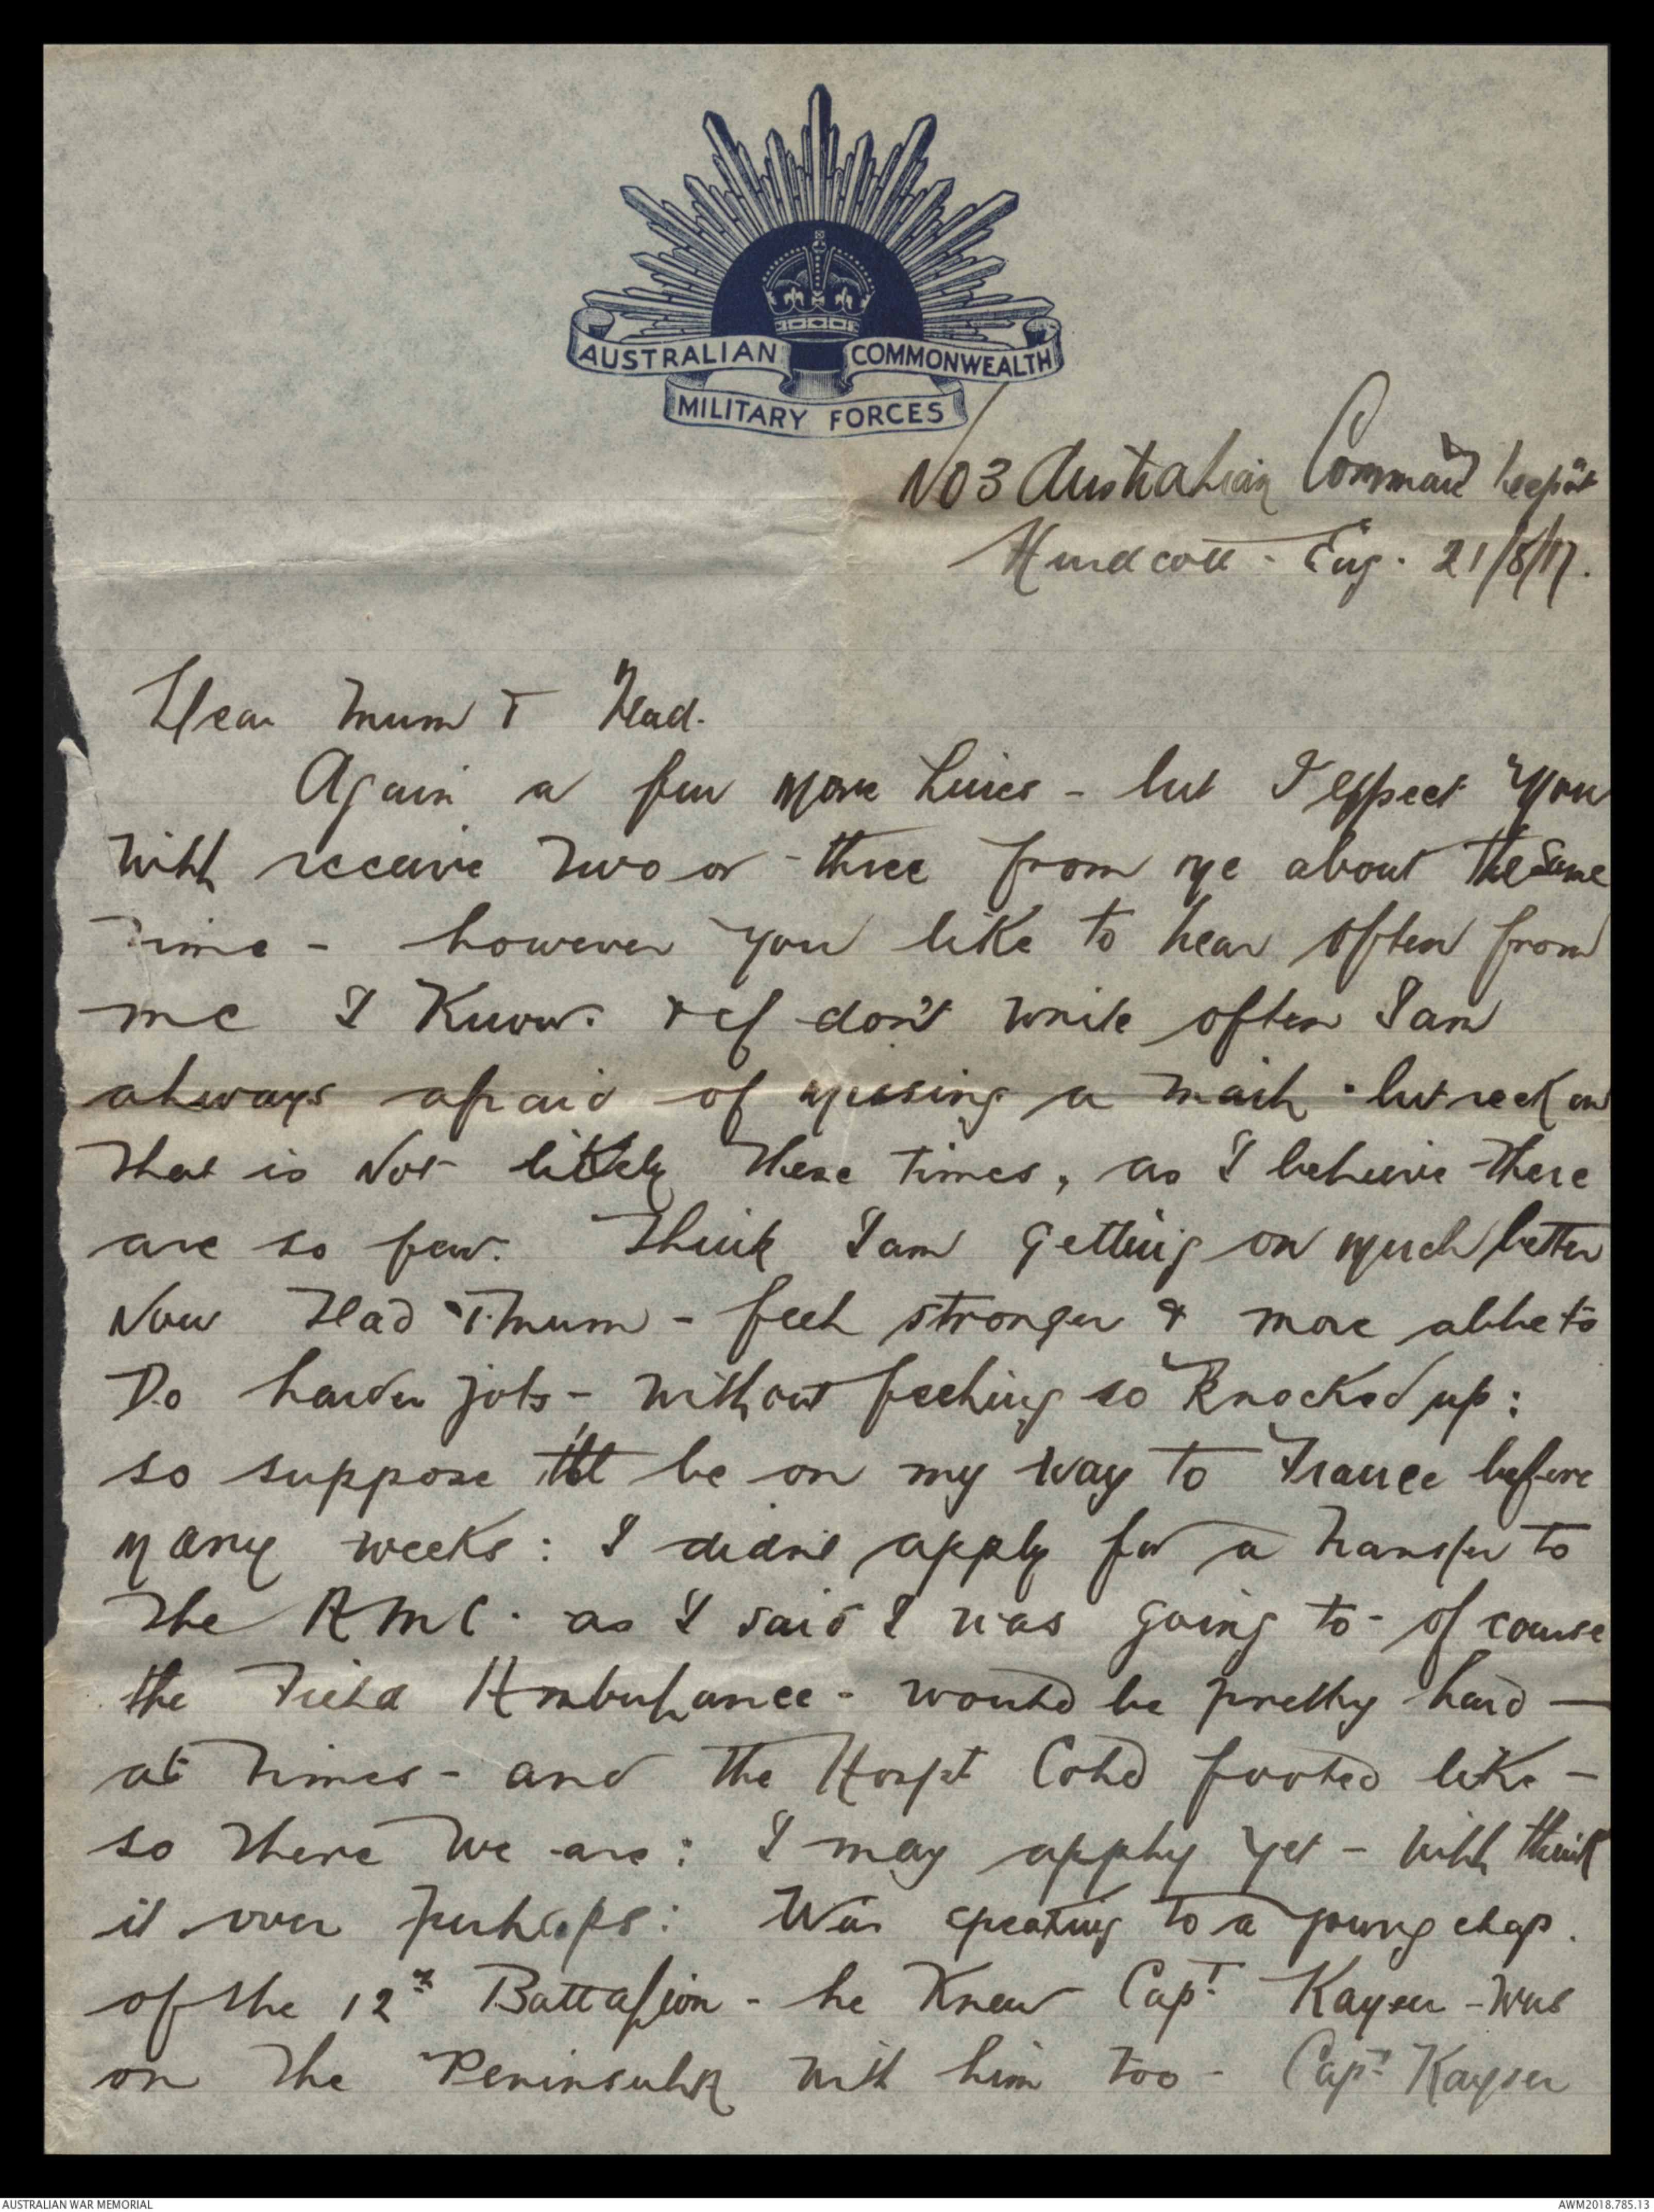 AUSTRALIAN COMMONWEALTH
MILITARY FORCES
No 3 Australian Command Depôt
Hurdcott - Eng. 21/8/17.
Dear Mum & Dad.
Again a few more lines - but I expect you
will receive two or three from me about the same
time - however you like to hear often from
me I know. & if don't write often I am
always afraid of missing a mail - but reckon
that is not likely these times, as I believe there
are so few. Think I am getting on much better
now Dad & Mum - feel stronger & more able to
do harder jobs - without feeling so knocked up:
so suppose I'll be on my way to France before
many weeks: I didn't apply for a transfer to
the A M C. as I said I was going to - of course
the Field Ambulance - would be pretty hard -
at times - and the Hospt Cold footed like -
so there we are: I may apply yet - will think
it over perhaps: Was speaking to a young chap.
of the 12th Battalion - he knew Capt Kayser - was
on the Peninsula with him too - Capt Kayser
AUSTRALIAN WAR MEMORIAL
AWM2018.785.13